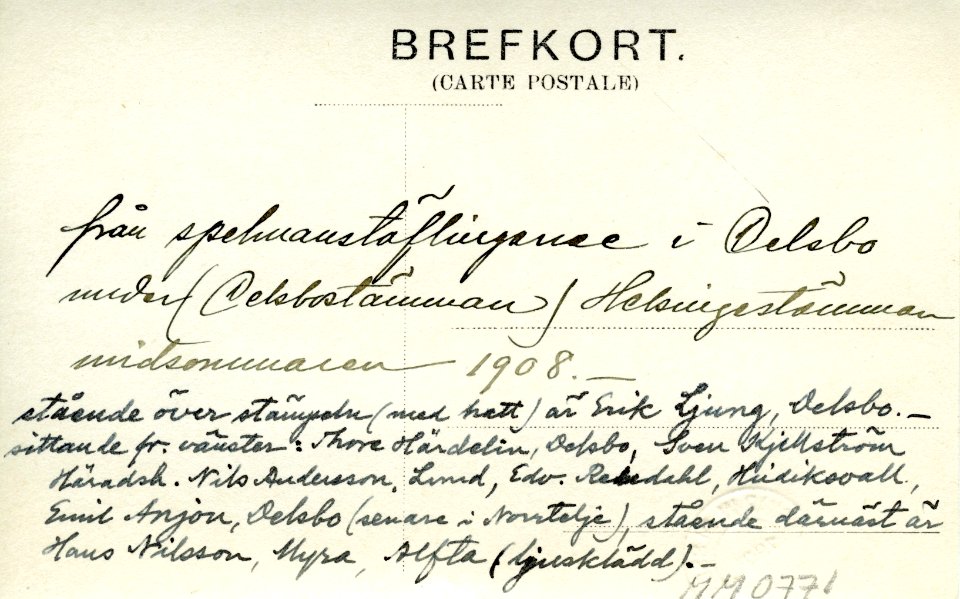 BREFKORT.
(CARTE POSTALE)
från spelmanstäflingarne i Delsbo
under (Delsbostämman) Helsingestämman
midsommaren 1908. —
stående över stämpeln (med hatt) är Erik Ljung, Delsbo. —
sittande fr. vänster: Thore Härdelin, Delsbo, Sven Kjellström
Häradsh. Nils Andersson, Lund, Edv. Hudiksvall,
Emil Anjou, Delsbo (senare i Norrtelje), stående därnäst är
Hans Nilsson, Myra, Alfta (ljusklädd). —
MM0771